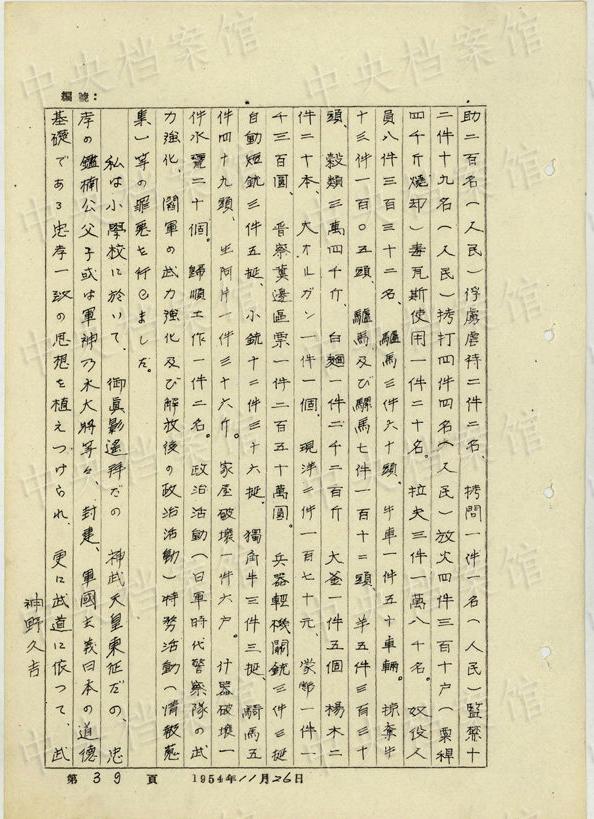 編號:
助二百名(人民)俘虜虐待二件二名、拷問一件一名(人民)監禁十
二件十九名(人民)拷打四件四名(人民)放火四件三百十户(粟稈
四千斤燒却)毒瓦斯使用一件二十名。拉夫三件一萬八千名。奴役人
員八件三百三十二名、驢馬三件六十頭、牛車一件五十車輛。掠奪牛
十三件一百〇五頭、驢馬及び騾馬七件一百十二頭、羊五件三百三十
頭、穀類三萬四千斤、白麵一件二千二百斤 大釜一件五個 楊木二
件二十本、大オルガン一件一個、現洋二件一百七十元、蒙幣一件一
千三百圓、晋察冀邊區票一件二百五十萬圓。兵器軽機關銃三件三挺
自動短銃三件五挺、小銃十二件三十六挺、獨角牛三件三挺、騎馬五
件四十九頭、生阿片一件三十六斤。家屋破壞一件六户。什器破壞一
件水甕二十個。歸順工作一件二名。政治活動(日軍時代警察隊の武
力強化、閻軍の武力強化及び解放後の政治活動)特務活動(情報蒐
集)等の罪悪を行ひました。
私は小學校に於いて、御眞影遙拜だの 神武天皇東征だの、忠
孝の鑑楠公父子或は軍神乃木大將等々、封建、軍國主義日本の道德
基礎である忠孝一致の思想を植えつけられ、更に武道に依つて、武
神野久吉
第39頁 1954年11月26日
中央档案馆